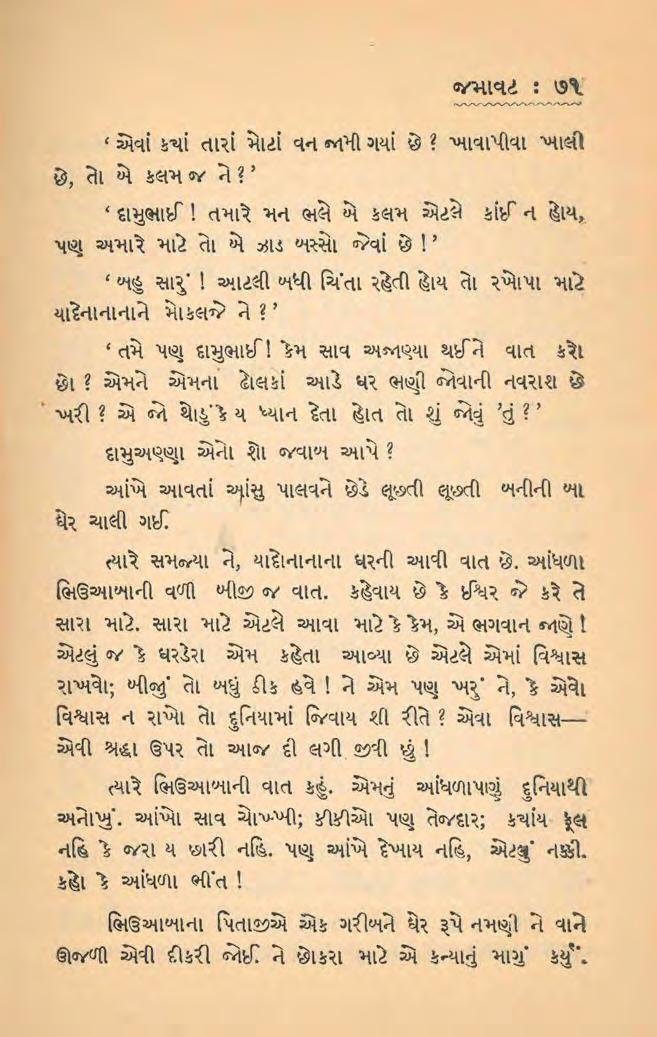 જમાવટ : ૭૧
‘ એવાં કયાં તારાં મોટાં વન જામી ગયાં છે ? ખાવાપીવા ખાલી
છે, તો બે કલમ જ ને ?’
‘ દામુભાઈ ! તમારે મન ભલે બે કલમ એટલે કાંઈ ન હોય,
પણ અમારે માટે તો બે ઝાડ બસ્સો જેવાં છે !’
‘ બહુ સારું ! આટલી બધી ચિંતા રહેતી હોય તો રખોપા માટે
યાદેનાનાનાને મોકલજે ને ?’
‘ તમે પણ દામુભાઈ ! કેમ સાવ અજાણ્યા થઈને વાત કરો
છો ? એમને એમના ઢોલકાં આડે ઘર ભણી જોવાની નવરાશ છે
ખરી ? એ જો થોડું કે ય ધ્યાન દેતા હોત તો શું જોવું ’તું ?’
દામુઅણ્ણા એનો શો જવાબ આપે ?
આંખે આવતાં આંસુ પાલવને છેડે લૂછતી લૂછતી બનીની બા
ઘેર ચાલી ગઈ.
ત્યારે સમજ્યા ને, યાદોનાનાના ઘરની આવી વાત છે. આંધળા
ભિઉઆબાની વળી બીજી જ વાત. કહેવાય છે કે ઈશ્વર જે કરે તે
સારા માટે. સારા માટે એટલે આવા માટે કે કેમ, એ ભગવાન જાણે !
એટલું જ કે ઘરડેરા એમ કહેતા આવ્યા છે એટલે એમાં વિશ્વાસ
રાખવો; બીજું તો બધું ઠીક હવે ! ને એમ પણ ખરું ને, કે એવો
વિશ્વાસ ન રાખો તો દુનિયામાં જિવાય શી રીતે ? એવા વિશ્વાસ—
એવી શ્રદ્ધા ઉપર તો આજ દી લગી જીવી છું !
ત્યારે ભિઉઆબાની વાત કહું. એમનું આંધળાપણું દુનિયાથી
અનોખું. આંખો સાવ ચોખ્ખી; કીકીઓ પણ તેજદાર; કયાંય ફૂલ
નહિ કે જરા ય છારી નહિ. પણ આંખે દેખાય નહિ, એટલું નક્કી.
કહો કે આંધળા ભીંત !
ભિઉઆબાના પિતાજીએ એક ગરીબને ઘેર રૂપે નમણી ને વાને
ઊજળી એવી દીકરી જોઈ. ને છોકરા માટે એ કન્યાનું માગું કર્યું.